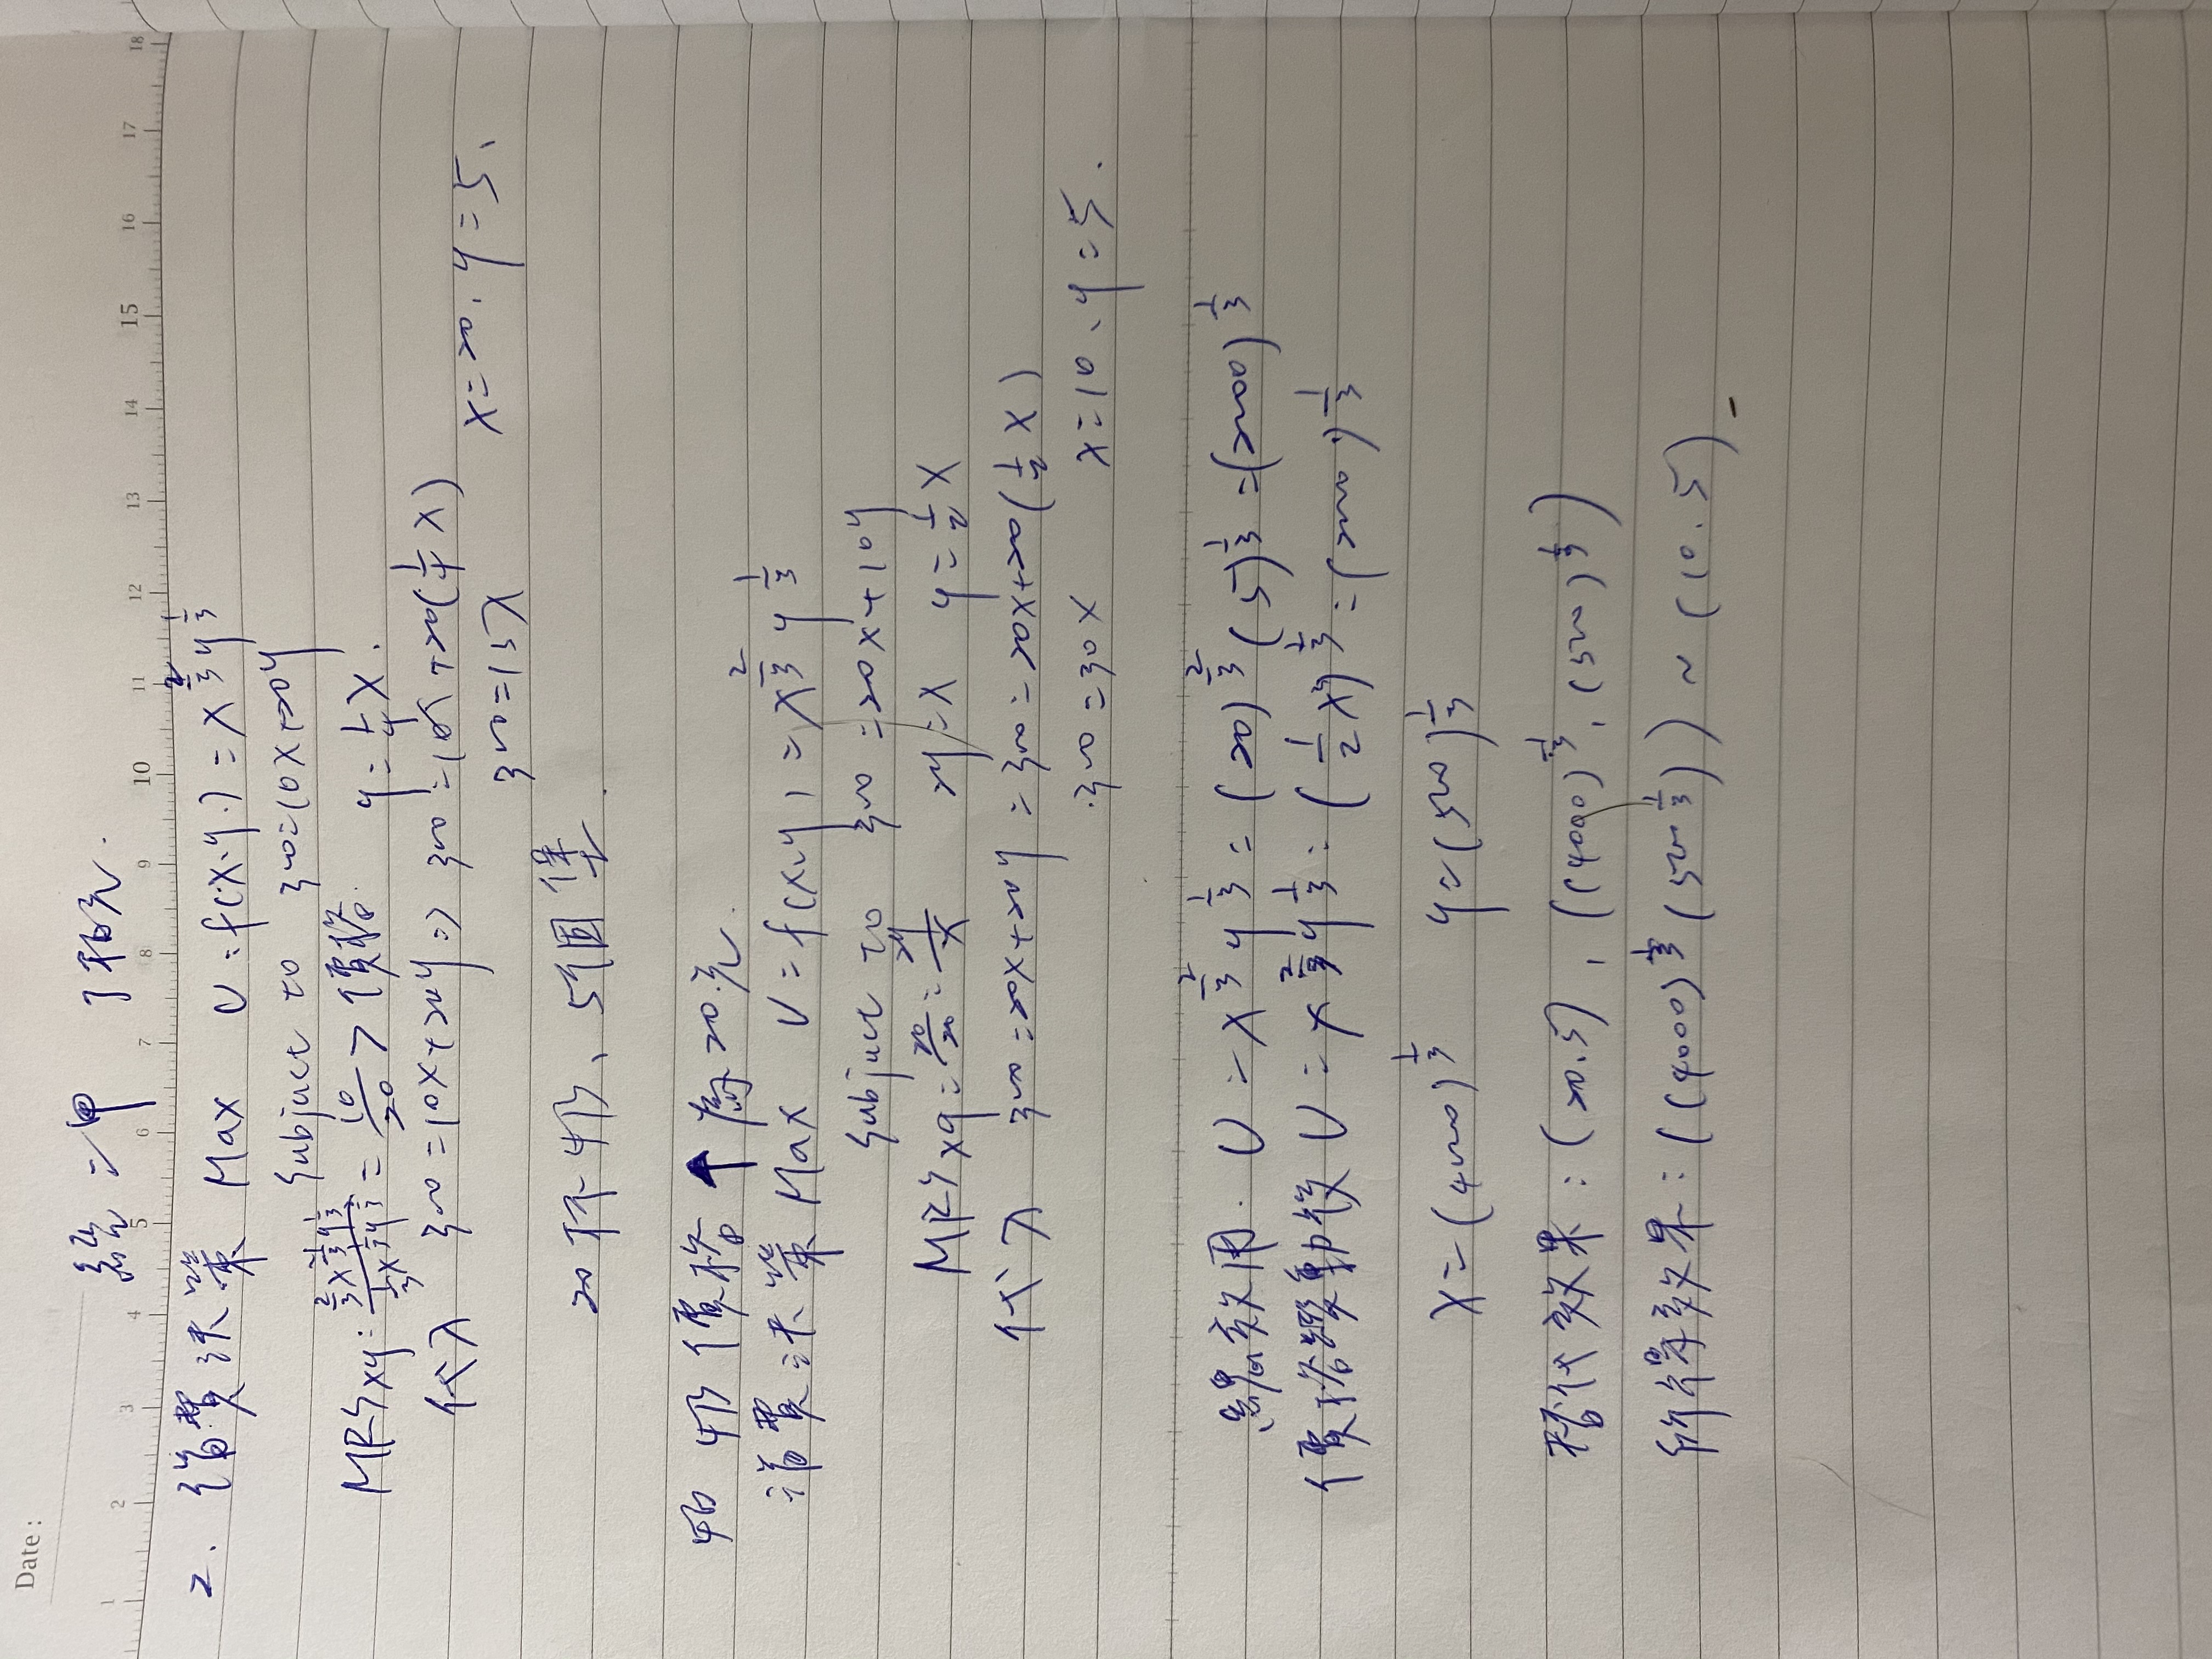 Date :
1 2 3 4 5 6 7 8 9 10 11 12 13 14 15 16 17 18
2. 消費決策 Max U = f(x、y.) = x^{2/3} y^{1/3}
Subject to 300=10x+20y
MRSxy = \frac{\frac{2}{3}x^{-\frac{1}{3}}y^{\frac{1}{3}}}{} = \frac{10}{20} > 價格. y = \frac{1}{4}x.
代入 300 = 10x+20y => 300 = 10x +20(\frac{1}{4} x)
300=15x x=20、y=5、
20杯奶、5個堡.
奶價格↑為20元.
消費決策 Max U = f(x、y) = x^{2/3} y^{1/3}
Subject to 300 =20x+10y
MRSxy = \frac{20}{20} = \frac{2y}{x} 2y=x y=\frac{1}{2}x
代入 300 =20x+20y = 300 = 20x+20(\frac{1}{2} x)
300 =30x x=10、y=5.
總效用. U = x^{2/3} y^{1/3} = (20)^{2/3} (5)^{1/3} =(2000)^{1/3}
價格變動後 U = x^{2/3} y^{1/3} = (\frac{1}{2}x³)^{1/3} = (2000)^{1/3}
x=(4000)^{1/3} y=(500)^{1/3}
替代效果:(20.5), ((4000)^{1/3}, (500)^{1/3})
所得效果:((4000)^{1/3} (500^{1/3})) ~ (10.5)